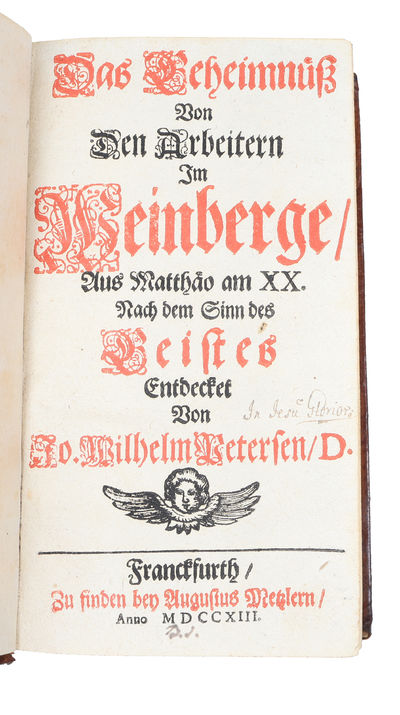 Das Geheimnüß
Von
Den Arbeitern
Im
Weinberge/
Aus Matthäo am XX.
Nach dem Sinn des
Geistes
Entdecket
Von
In Jesu Glorior
Jo. Wilhelm Petersen/ D.
Franckfurth/
Zu finden bey Augustus Metzlern/
Anno MDCCXIII.